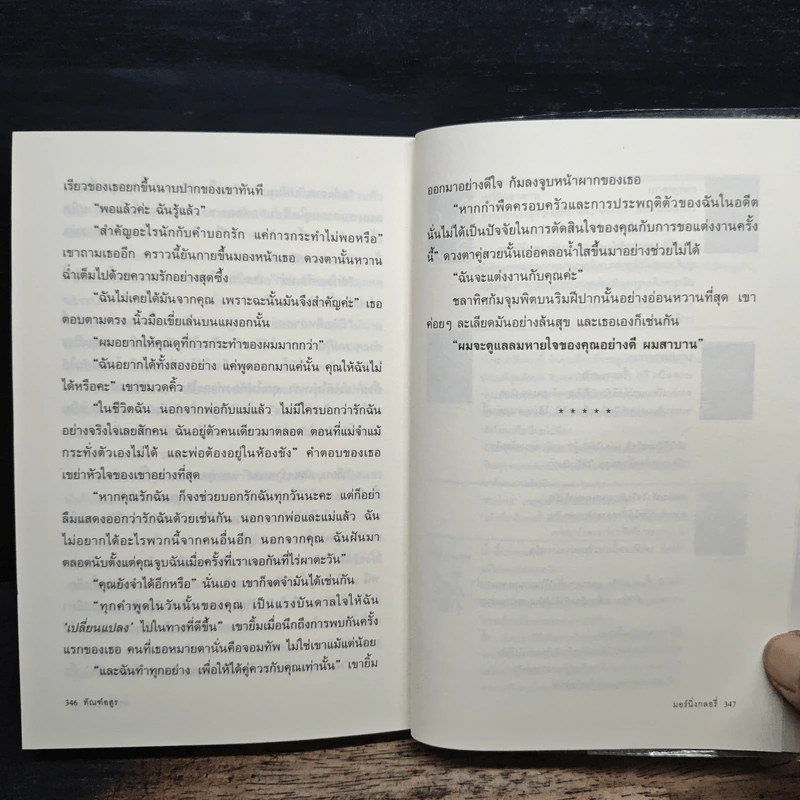 เรียวของเธอยกขึ้นนาบปากของเขาทันที
“พอแล้วค่ะ ฉันรู้แล้ว”
“สำคัญอะไรนักกับคำบอกรัก แค่การกระทำไม่พอหรือ”
เขาถามเธออีก คราวนี้ยันกายขึ้นมองหน้าเธอ ดวงตานั้นหวาน
ฉ่ำเต็มไปด้วยความรักอย่างสุดซึ้ง
“ฉันไม่เคยได้มันจากคุณ เพราะฉะนั้นมันจึงสำคัญค่ะ” เธอ
ตอบตามตรง นิ้วมือเขี่ยเล่นบนแผงอกนั้น
“ผมอยากให้คุณดูที่การกระทำของผมมากกว่า”
“ฉันอยากได้ทั้งสองอย่าง แค่พูดออกมาแค่นั้น คุณให้ฉันไม่
ได้หรือคะ” เขาขมวดคิ้ว
“ในชีวิตฉัน นอกจากพ่อกับแม่แล้ว ไม่มีใครบอกว่ารักฉัน
อย่างจริงใจเลยสักคน ฉันอยู่ตัวคนเดียวมาตลอด ตอนที่แม่จำแม้
กระทั่งตัวเองไม่ได้ และพ่อต้องอยู่ในห้องขัง” คำตอบของเธอ
เขย่าหัวใจของเขาอย่างที่สุด
“หากคุณรักฉัน ก็จงช่วยบอกรักฉันทุกวันนะคะ แต่ก็อย่า
ลืมแสดงออกว่ารักฉันด้วยเช่นกัน นอกจากพ่อและแม่แล้ว ฉัน
ไม่อยากได้อะไรพวกนี้จากคนอื่นอีก นอกจากคุณ ฉันฝันมา
ตลอดนับตั้งแต่คุณจูบฉันเมื่อครั้งที่เราเจอกันที่ไร่ผาตะวัน”
“คุณยังจำได้อีกหรือ” นั่นเอง เขาก็จดจำมันได้เช่นกัน
“ทุกคำพูดในวันนั้นของคุณ เป็นแรงบันดาลใจให้ฉัน
‘เปลี่ยนแปลง’ ไปในทางที่ดีขึ้น” เขายิ้มเมื่อนึกถึงการพบกันครั้ง
แรกของเธอ คนที่เธอหมายตานั่นคือจอมทัพ ไม่ใช่เขาแม้แต่น้อย
“และฉันทำทุกอย่าง เพื่อให้ได้คู่ควรกับคุณเท่านั้น” เขายิ้ม
346 ทัณฑ์อสูร
ออกมาอย่างดีใจ ก้มลงจูบหน้าผากของเธอ
“หากกำพืดครอบครัวและการประพฤติตัวของฉันในอดีต
นั่นไม่ได้เป็นปัจจัยในการตัดสินใจของคุณกับการขอแต่งงานครั้ง
นี้” ดวงตาคู่สวยนั้นเอ่อคลอน้ำใสขึ้นมาอย่างช่วยไม่ได้
“ฉันจะแต่งงานกับคุณค่ะ”
ชลาทิศก้มจุมพิตบนริมฝีปากนั้นอย่างอ่อนหวานที่สุด เขา
ค่อยๆ ละเลียดมันอย่างล้นสุข และเธอเองก็เช่นกัน
“ผมจะดูแลลมหายใจของคุณอย่างดี ผมสาบาน”
* * * * *
มอร์นิ่งกลอรี่ 347